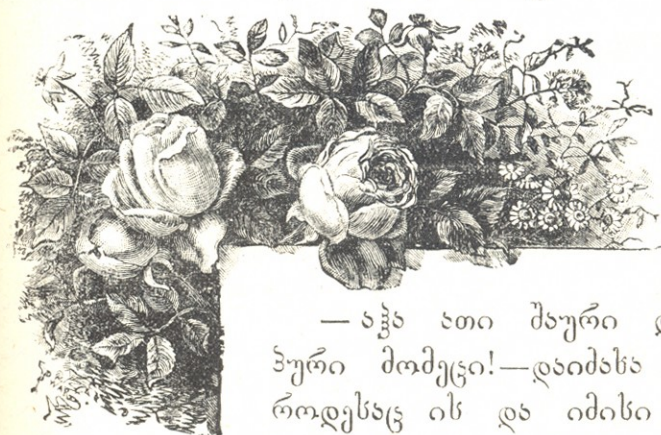 — აჰა ათი შაური
პური მომეცი!—დაიძახა
როდესაც ის და იმისი